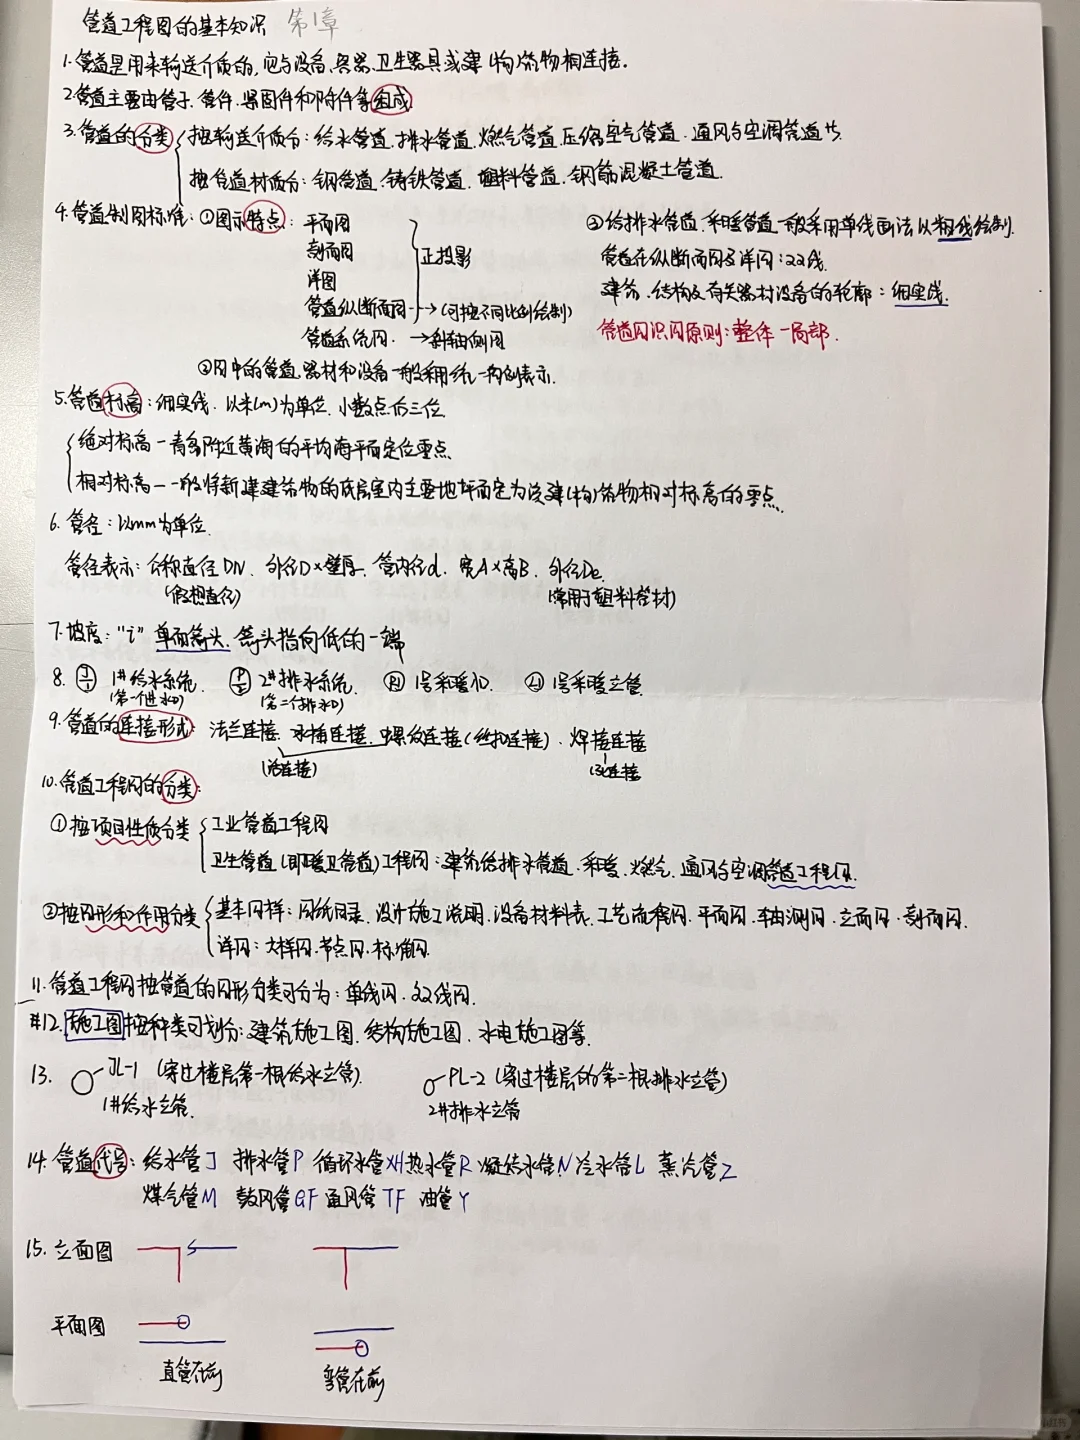 管道工程图的基本知识 第1章
1.管道是用来输送介质的,它与设备、容器、卫生器具或建(构)筑物相连接.
2.管道主要由管子、管件、紧固件和附件等组成
3.管道的分类 按输送介质分:给水管道、排水管道、燃气管道、压缩空气管道、通风与空调管道等
按管道材质分:钢管道、铸铁管道、塑料管道、钢筋混凝土管道.
4.管道制图标准:①图示特点:平面图
剖面图
详图
管道纵断面图→(可按不同比例绘制)
正投影
管道系统图.→斜轴侧图
②图中的管道、器材和设备一般采用统一图例表示.
③给排水管道、采暖管道一般采用单线画法以粗线绘制.
管道在纵断面图及详图:双线.
建筑、结构及有关器材设备的轮廓:细实线.
管道图识图原则:整体-局部.
5.管道标高:细实线.以米(m)为单位.小数点后三位
绝对标高-青岛附近黄海的平均海平面定位零点
相对标高-一般将新建建筑物的底层室内主要地坪面定为该建(构)筑物相对标高的零点.
6.管径:以mm为单位.
管径表示:公称直径DN、外径D×壁厚、管内径d.宽A×高B、外径De
(假想直径) (常用于塑料管材)
7.坡度:“i”单面箭头.箭头指向低的一端
8. J/1 1#给水系统. P/2 2#排水系统. R1 1号采暖入口. L1 1号采暖立管.
(第一个进水口) (第二个排水口)
9.管道的连接形式:法兰连接、承插连接、螺纹连接(丝扣连接).焊接连接
(活连接) (死连接)
10.管道工程图的分类:
①按项目性质分类 工业管道工程图
卫生管道(即暖卫管道)工程图:建筑给排水管道、采暖、燃气、通风与空调管道工程图.
②按图形和作用分类 基本图样:图纸目录、设计施工说明、设备材料表、工艺流程图、平面图、轴测图、立面图、剖面图.
详图:大样图、节点图、标准图.
11.管道工程图按管道的图形分类可分为:单线图、双线图.
#12.施工图按种类可划分:建筑施工图、结构施工图、水电施工图等.
13. JL-1(穿过楼层第一根给水立管). PL-2(穿过楼层的第二根排水立管)
1#给水立管. 2#排水立管
14.管道代号:给水管J 排水管P 循环水管XH 热水管R 凝结水管N 冷水管L 蒸汽管Z
煤气管M 鼓风管GF 通风管TF 油管Y
15.立面图
平面图
直管在前 弯管在前